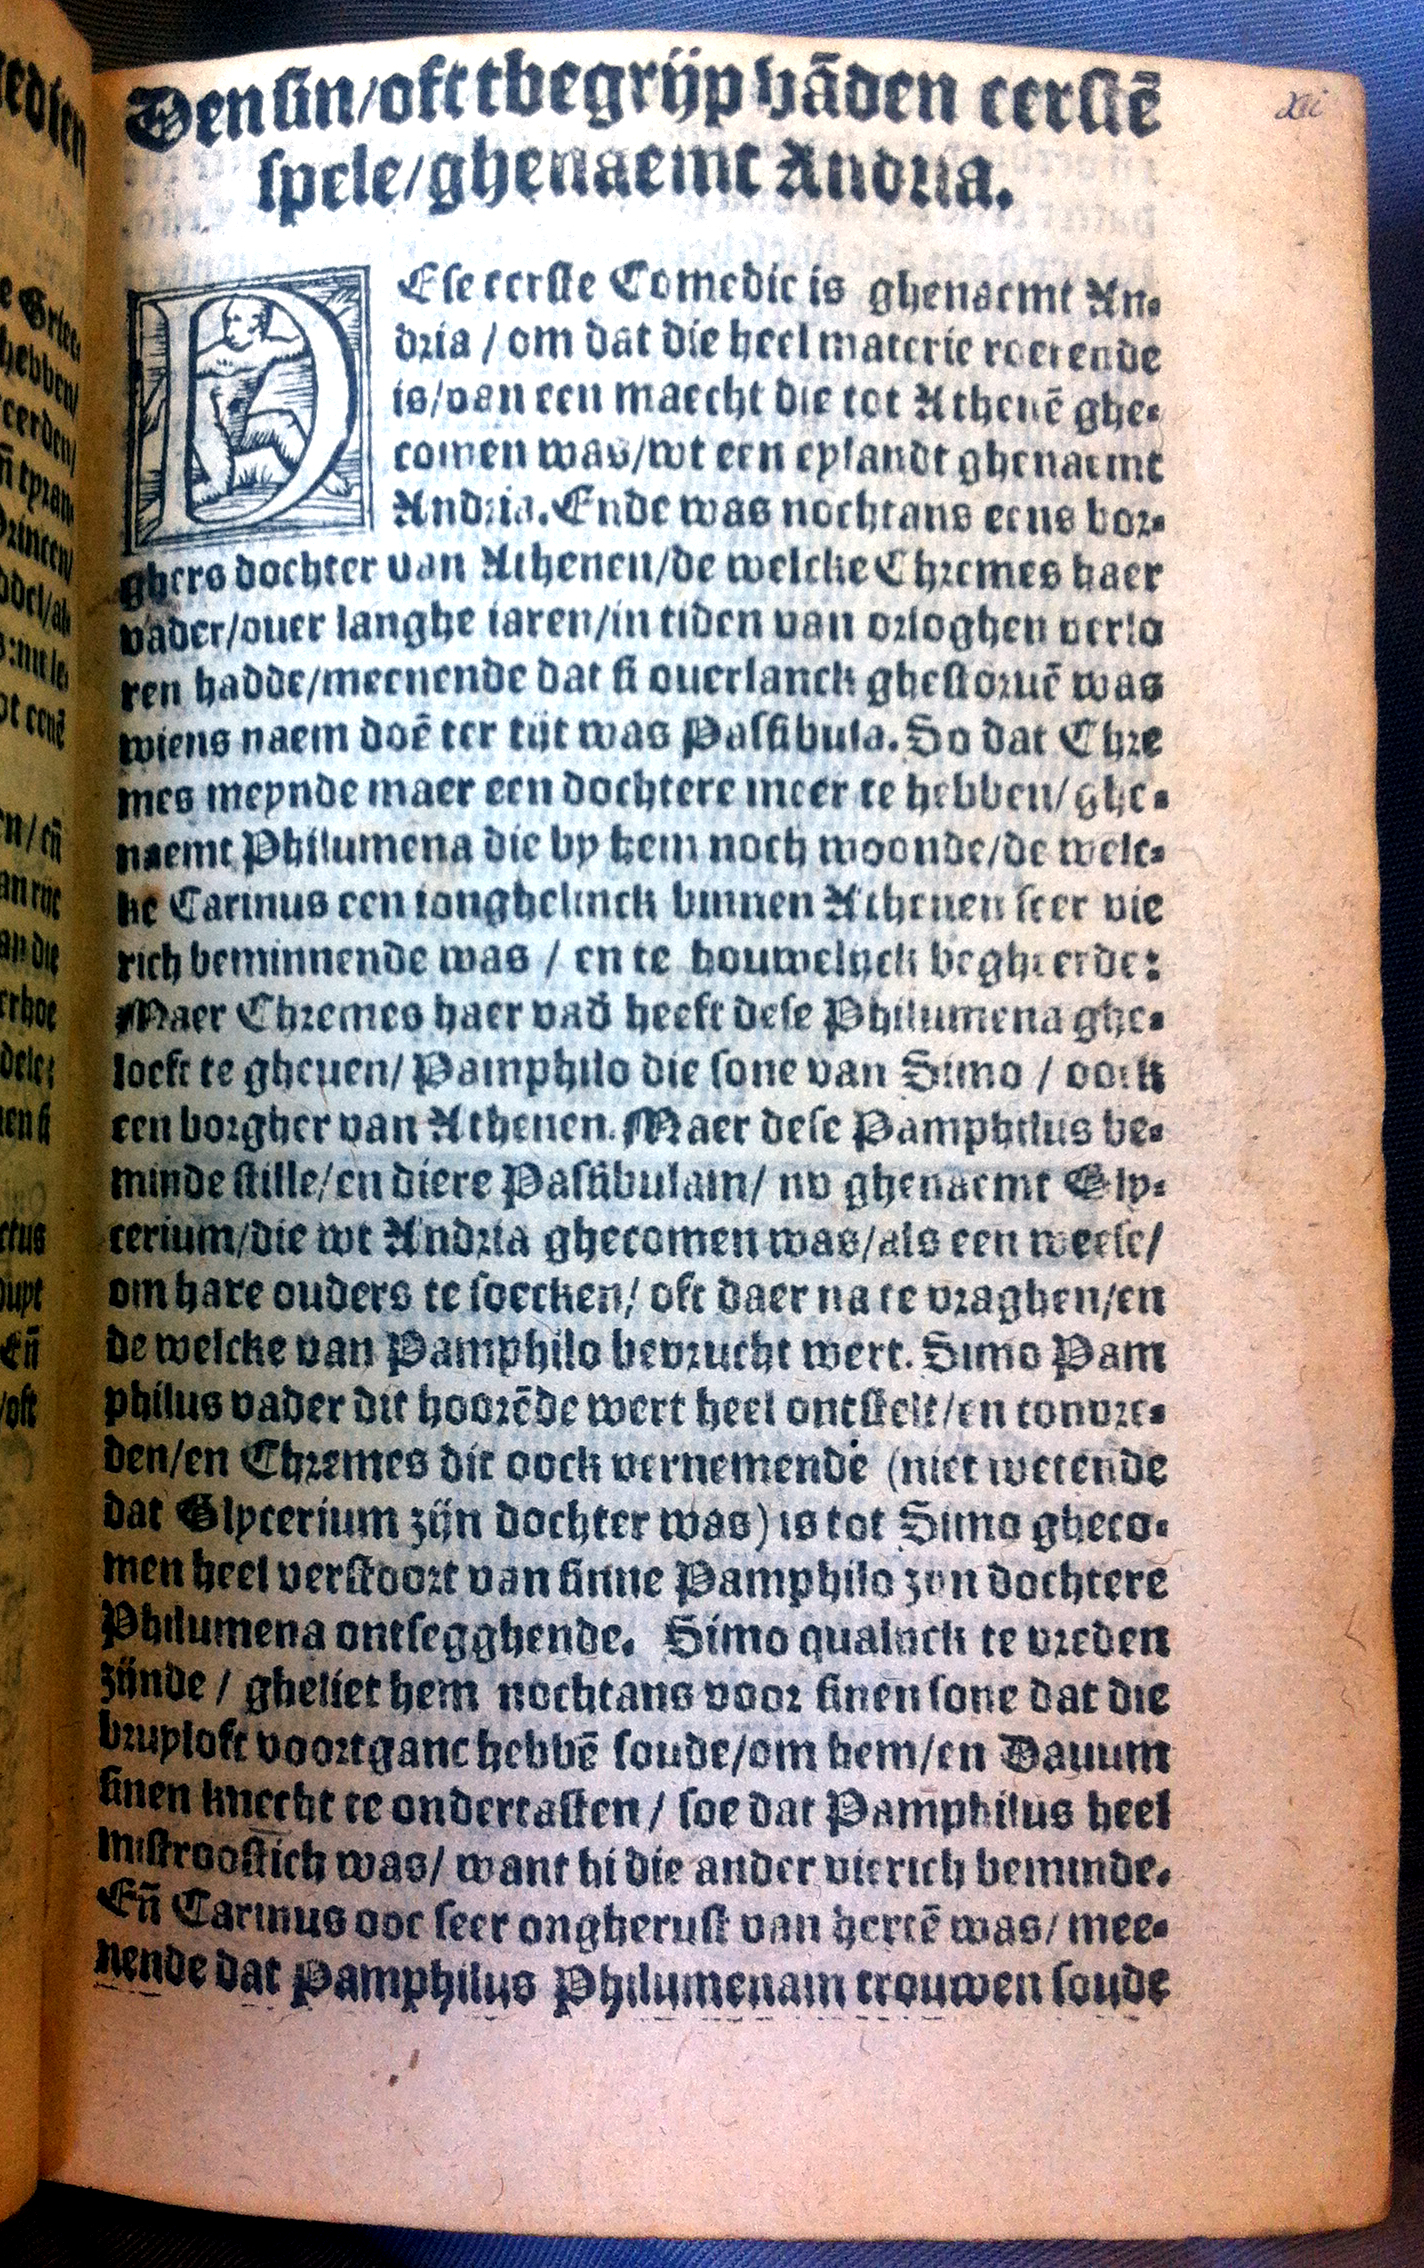 xii
Den sin/oft tbegrijp vāden eerstē
spele/ghenaemt Andria.
DEse eerste Comedie is ghenaemt An-
dria / om dat die heel materie roerende
is/van een maecht die tot Athenē ghe-
comen was/wt een eylandt ghenaemt
Andria. Ende was nochtans eens bor-
ghers dochter van Athenen/de welcke Chremes haer
vader/ouer langhe iaren/in tiden van orloghen verlo
ren hadde/meenende dat si ouerlanck ghestoruē was
wiens naem doē ter tijt was Passibula. So dat Chre
mes meynde maer een dochtere meer te hebben/ghe-
naemt Philumena die by hem noch woonde/de welc-
ke Carinus een ionghelinck binnen Athenen seer vie
rich beminnende was / en te houwelijck begheerde:
Maer Chremes haer vad̄ heeft dese Philumena ghe-
loeft te gheuen/ Pamphilo die sone van Simo / oock
een borgher van Athenen. Maer dese Pamphilus be-
minde stille/en diere Passibulam/ nv ghenaemt Gly-
cerium/die wt Andria ghecomen was/als een weese/
om hare ouders te soecken/ oft daer na te vraghen/en
de welcke van Pamphilo bevrucht wert. Simo Pam
philus vader dit hoorēde wert heel ontstelt/en tonvre-
den/en Chremes dit oock vernemende (niet wetende
dat Glycerium zijn dochter was) is tot Simo gheco-
men heel verstoort van sinne Pamphilo zyn dochtere
Philumena ontsegghende. Simo qualijck te vreden
zijnde / gheliet hem nochtans voor sinen sone dat die
bruyloft voortganc hebbē soude/om hem/en Dauum
sinen knecht te ondertasten/ soe dat Pamphilus heel
mistroostich was/ want hi die ander vierich beminde.
Eñ Carinus ooc seer ongherust van hertē was/ mee-
nende dat Pamphilus Philumenam trouwen soude